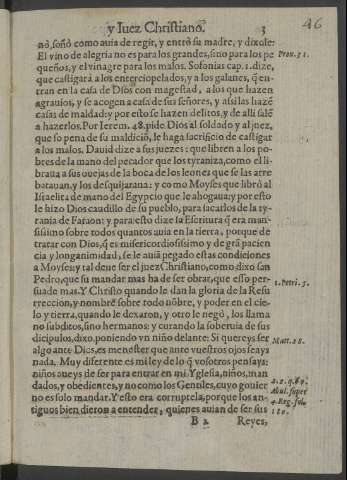 y Iuez Christiano. 3
46
nó, soñò como auia de regir, y entrò su madre, y dixole:
El vino de alegria no es para los grandes, sino para los pe
queños, y el vinagre para los malos. Sofonias cap. 1. dize,
que castigarà a los entreciopelados, y a los galanes, q̃ en-
tran en la casa de Dios con magestad, a los que hazen
agrauios, y se acogen a casa de sus señores, y assi las hazẽ
casas de maldad: y por esto se hazen delitos, y de alli salẽ
a hazerlos. Por Ierem. 48. pide Dios al soldado y al juez,
que so pena de su maldiciõ, le haga sacrificio de castigar
a los malos. Dauid dize a sus juezes: que libren a los po-
bres de la mano del pecador que los tyraniza, como el li-
braua a sus ouejas de la boca de los leones que se las arre
batauan, y los desquijaraua: y como Moyses que librò al
Israelita de mano del Egypcio que le ahogaua: y por esto
le hizo Dios caudillo de su pueblo, para sacarlos de la ty-
rania de Faraon: y para esto dize la Escritura q̃ era man-
sissimo sobre todos quantos auia en la tierra, porque de
tratar con Dios, q̃ es misericordiosissimo y de grã pacien
cia y longanimidad, se le auiã pegado estas condiciones
a Moyses: y tal deue ser el juez Christiano, como dixo san
Pedro, que su mandar mas ha de ser obrar, que esso per-
suade mas. Y Christo quando le dan la gloria de la Resu
rreccion, y nombrẽ sobre todo nõbre, y poder en el cie-
lo y tierra, quando le dexaron, y otro le negò, los llama
no subditos, sino hermanos: y curando la soberuia de sus
dicipulos, dixo, poniendo vn niño delante: Si quereys ser
algo ante Dios, es menester que ante vuestros ojos seays
nada. Muy diferente es mi ley de lo q̃ vosotros pensays:
niños aueys de ser para entrar en mi Yglesia, niños, man
dados, y obedientes, y no como los Gentiles, cuyo gouier
no es solo mandar. Y esto era corruptela, porque los an-
tiguos bien dieron a entender, quienes auian de ser sus
B 2 Reyes,
Prou. 31.
1. Petri. 5.
Matt. 18.
2. 2. q. 69.
Abul. super
4. Reg. fol.